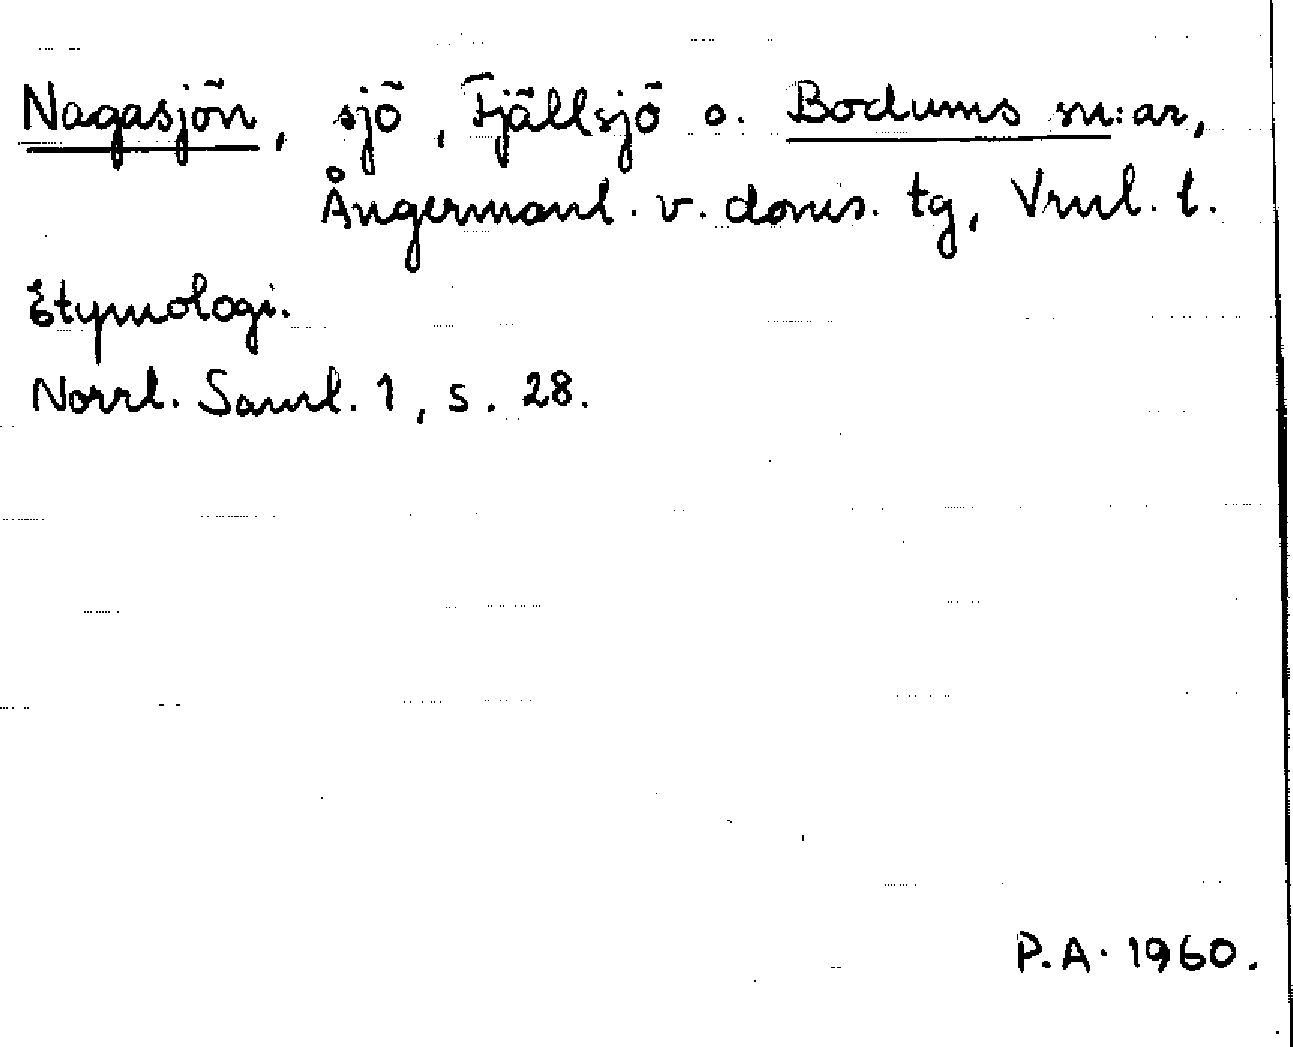 Nagasjön, sjö, Fjällsjö o. Bodums sn:ar,
Ångermanl. v. doms. tg, Vrnl. l.
Etymologi.
Norrl. Saml. 1, s. 28.
P.A. 1960.